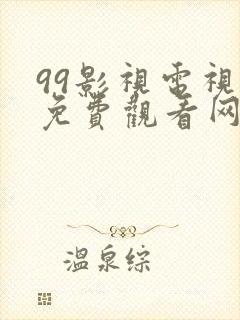 99影視電視
免費觀看网
溫泉综